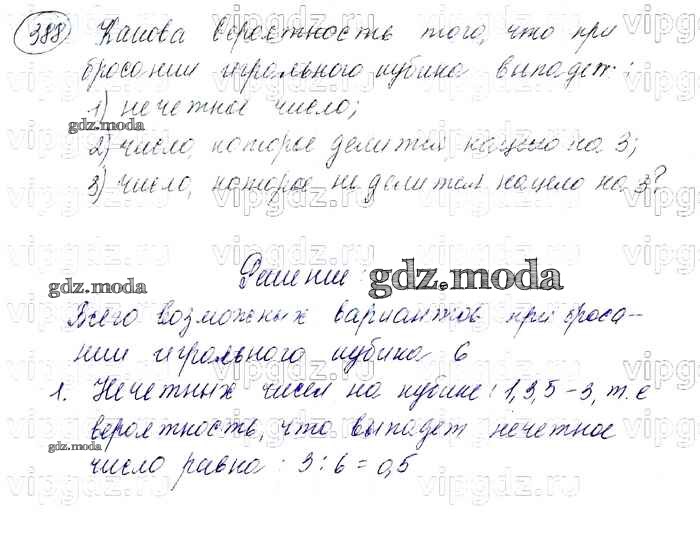 388 Какова вероятность того, что при
бросании игрального кубика выпадет:
1) нечетное число;
gdz.moda
2) число, которое делится нацело на 3;
3) число, которое не делится нацело на 3?
Решение:
gdz.moda
gdz.moda
Всего возможных вариантов при броса-
нии игрального кубика 6
1. Нечетных чисел на кубике: 1,3,5 – 3, т.е
вероятность, что выпадет нечетное
gdz.moda
число равна: 3 : 6 = 0,5
vipgdz.ru